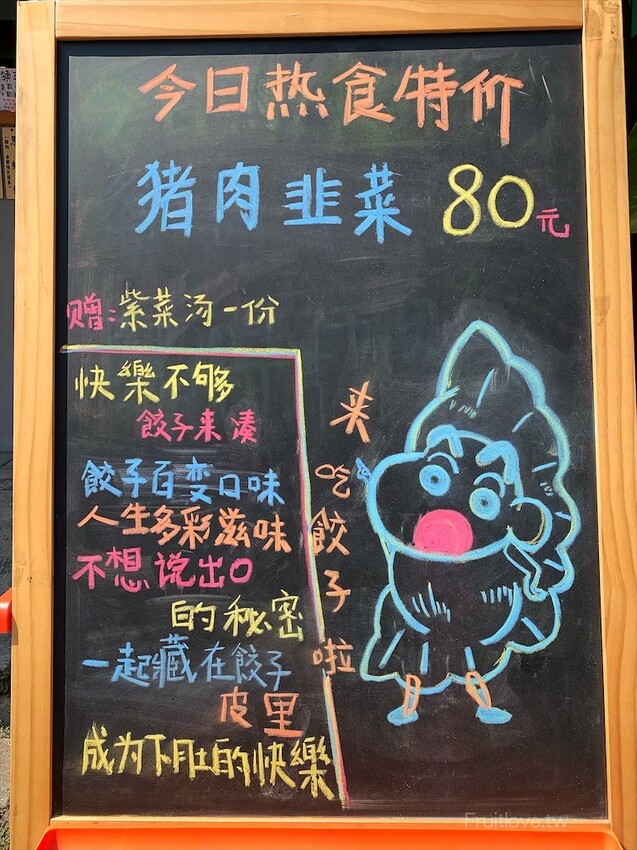 今日热食特价
猪肉韭菜 80元
赠:紫菜汤一份
快樂不够
餃子来凑
餃子百变口味
人生多彩滋味
不想说出口
的秘密
一起藏在餃子
皮里
成为下肚的快樂
来吃餃子啦
Fruitlove.tw